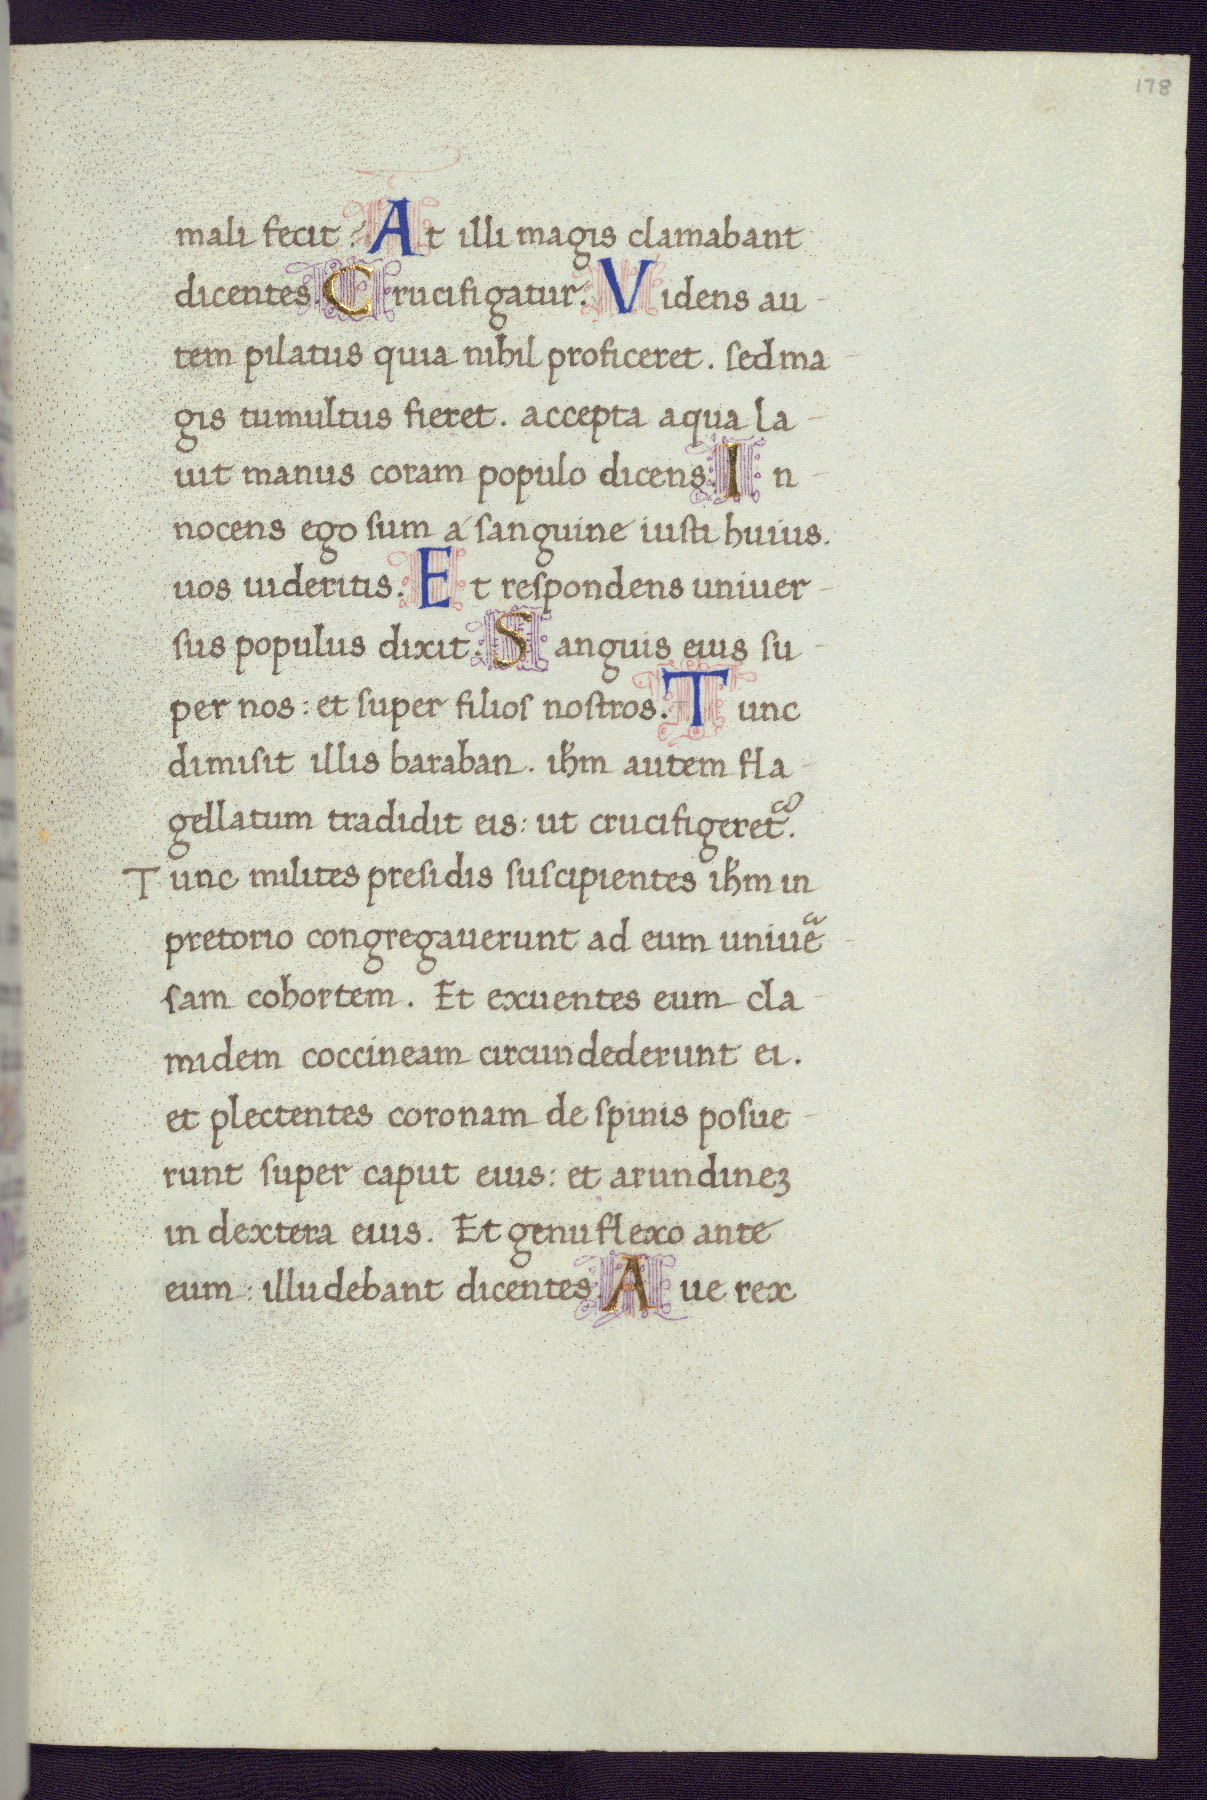 178
mali fecit? At illi magis clamabant
dicentes. Crucifigatur. Videns au-
tem pilatus quia nihil proficeret. sed ma-
gis tumultus fieret. accepta aqua la-
uit manus coram populo dicens. In-
nocens ego sum á sanguine iusti huius.
uos uideritis. Et respondens uniuer-
sus populus dixit. Sanguis eius su-
per nos: et super filios nostros. Tunc
dimisit illis baraban. ihm̄ autem fla-
gellatum tradidit eis: ut crucifigeret᷑.
Tunc milites presidis suscipientes ihm̄ in
pretorio congregauerunt ad eum uniue᷑-
sam cohortem. Et exuentes eum cla-
midem coccineam circundederunt ei.
et plectentes coronam de spinis posue-
runt super caput eius: et arundineꝫ
in dextera eius. Et genu flexo ante
eum: illudebant dicentes. Aue rex